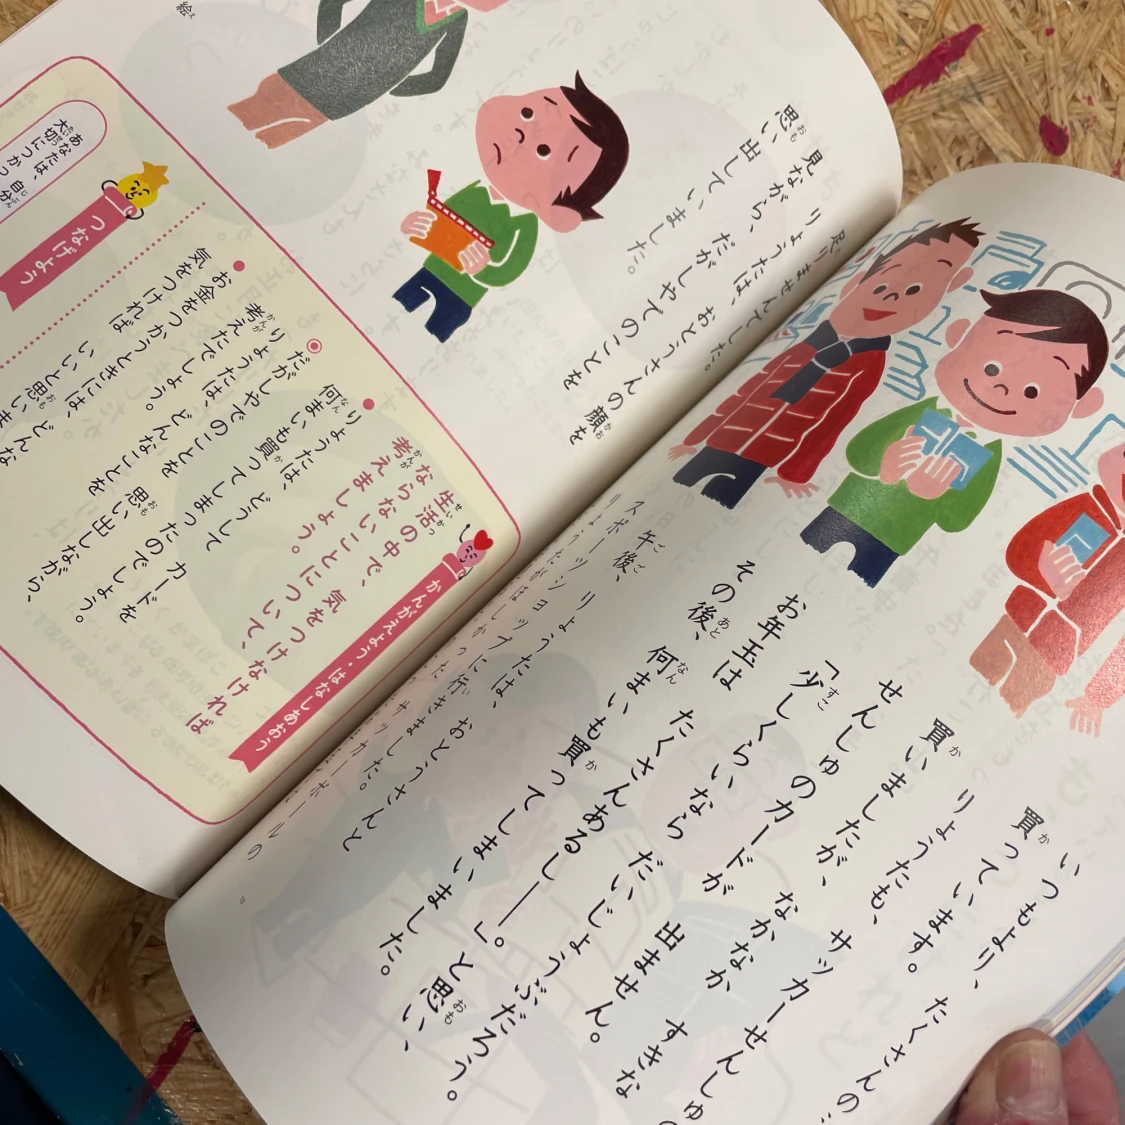 いつもより、たくさんの
買っています。
りょうたも、サッカーせんしゅ
買いましたが、なかなか すきな
せんしゅのカードが 出ません。
「少しくらいなら だいじょうぶだろう。
お年玉は たくさんあるし――」。と思い、
その後、何まいも買ってしまいました。
午後、りょうたは、おとうさんと
スポーツショップに行きました。
りょうたがほしかったサッカーボールの
足りませんでした。
りょうたは、おとうさんの顔を
見ながら、だがしやでのことを
思い出していました。
絵
かんがえよう・はなしあおう
生活の中で、気をつけなければ
ならないことについて、
考えましょう。
りょうたは、どうして
何まいも買ってしまったのでしょう。
だがしやでのことを思い出しながら、
りょうたは、どんなことを
考えたでしょう。
お金をつかうときには、どんな
気をつければ いいと思いま
つなげよう
あなたは 自分
大切につかっ